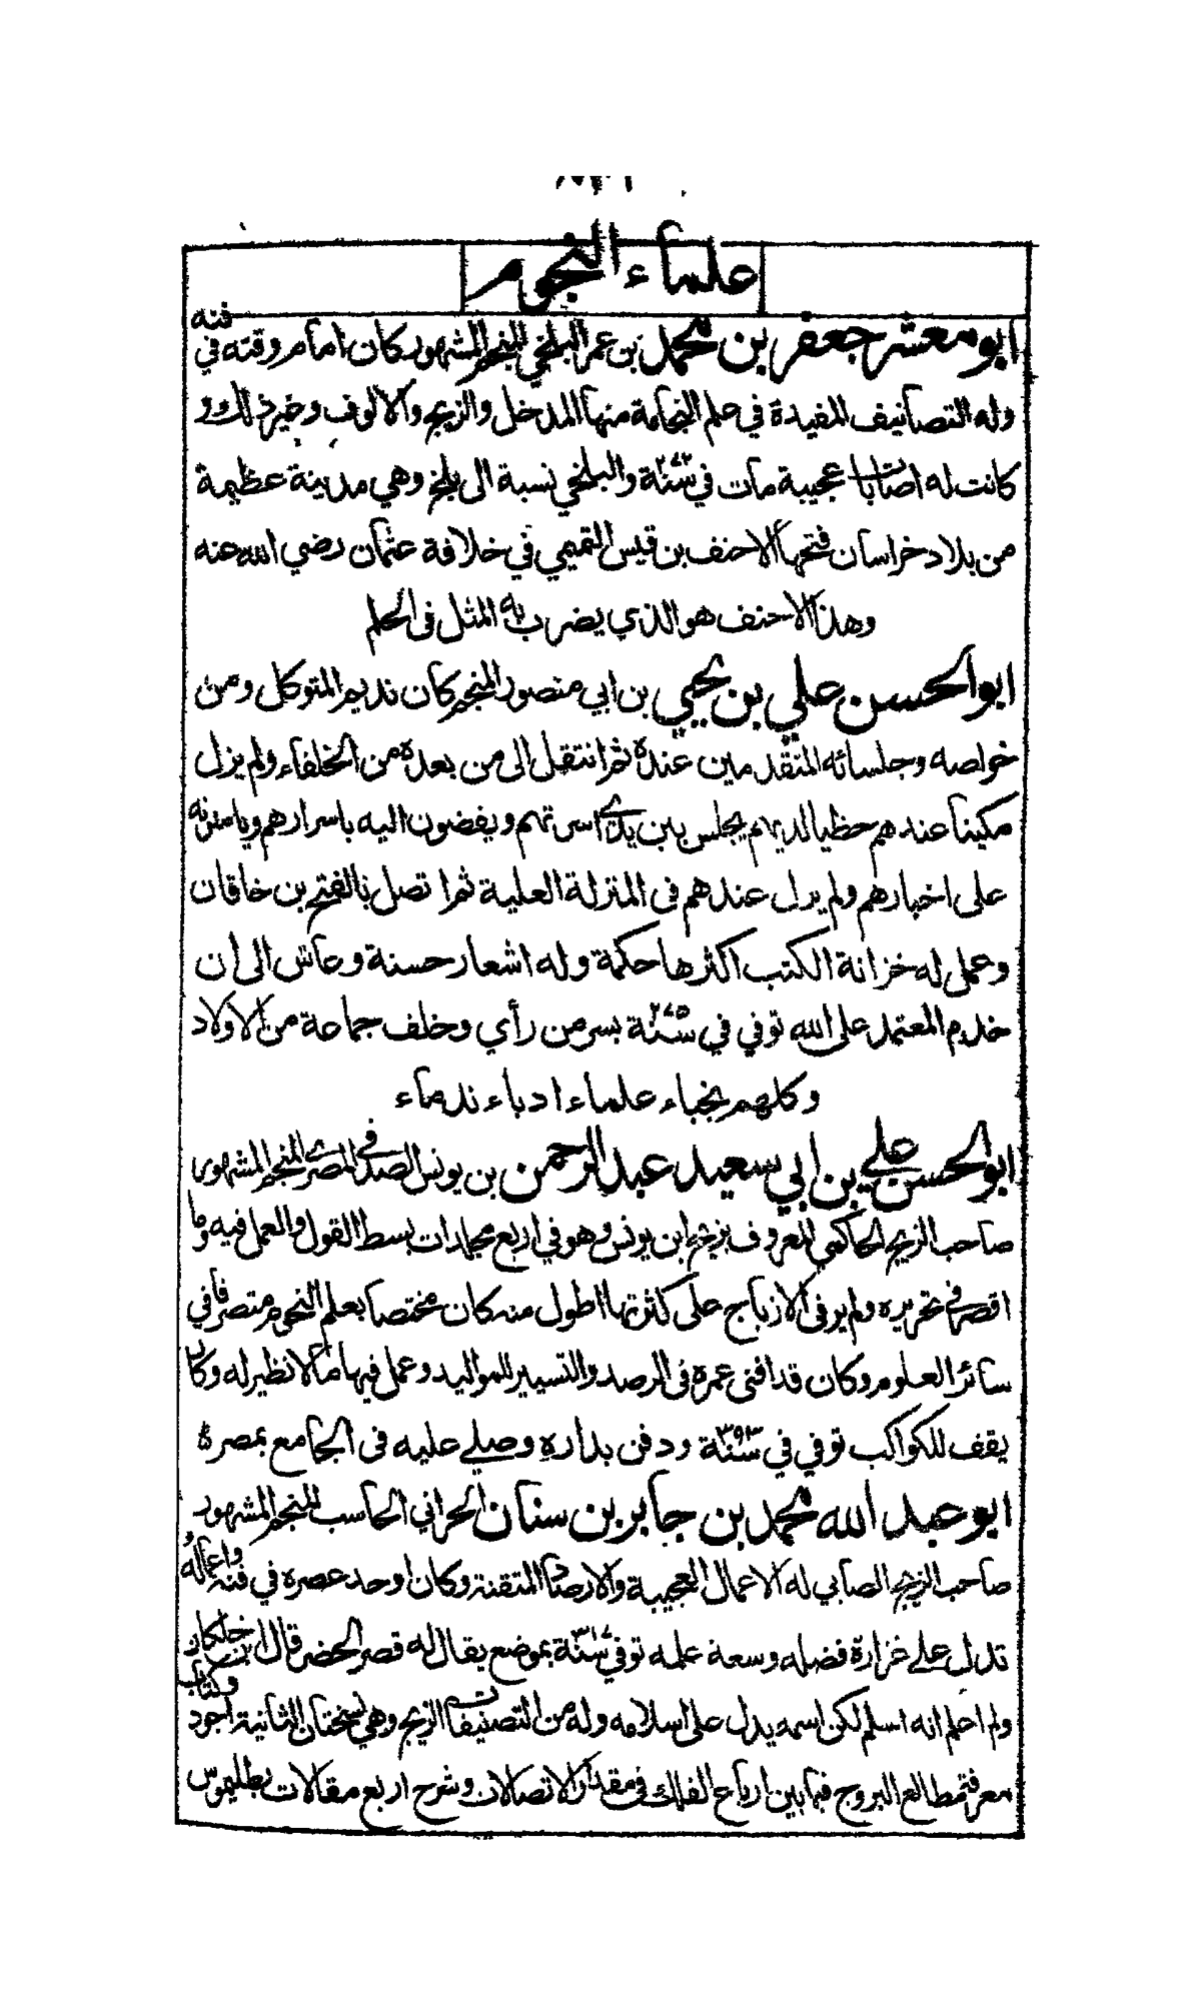 علماء النجوم
ابو معشر جعفر بن محمد بن عمر البلخي المنجم المشهور كان امام وقته في فنه
وله التصانيف المفيدة في علم النجامة منها المدخل والزيج والالوف وغير ذلك و
كانت له اصابات عجيبة مات في سنة ٢٧٢ والبلخي نسبة الى بلخ وهي مدينة عظيمة
من بلاد خراسان فتحها الاحنف بن قيس التميمي في خلافة عثمان رضي الله عنه
وهذا الاحنف هو الذي يضرب به المثل فى الحلم
ابو الحسن علي بن يحيى بن ابي منصور المنجم كان نديم المتوكل ومن
خواصه وجلسائه المتقدمين عنده ثم انتقل الى من بعده من الخلفاء ولم يزل
مكينا عندهم حظيا لديهم يجلس بين يدي اسرتهم ويفضون اليه باسرارهم ويامنونه
على اخبارهم ولم يزل عندهم فى المنزلة العلية ثم اتصل بالفتح بن خاقان
وعمل له خزانة الكتب اكثرها حكمة وله اشعار حسنة وعاش الى ان
خدم المعتمد على الله توفي في سنة ٢٧٥ بسر من رأي وخلف جماعة من الاولاد
وكلهم نجباء علماء ادباء ندماء
ابو الحسن علي بن ابي سعيد عبد الرحمن بن يونس الصدفي المصري المنجم المشهور
صاحب الزيج الحاكمي المعروف بزيج ابن يونس وهو في اربع مجلدات بسط القول والعمل فيه وما
اقصر في تحريره ولم ير فى الازياج على كثرتها اطول منه كان مختصا بعلم النجوم متصرفا في
سائر العلوم وكان قد افنى عمره فى الرصد والتسيير للمواليد وعمل فيها ما لا نظير له وكان
يقف للكواكب توفي في سنة ٣٩٣ ودفن بداره وصلے عليه فى الجامع بمصرة
ابو عبد الله محمد بن جابر بن سنان الحراني الحاسب المنجم المشهور
صاحب الزيج الصابي له الاعمال العجيبة والارصاد المتقنة وكان اوحد عصره في فنه واعماله
تدل علے غزارة فضله وسعة علمه توفي سنة ٣١٧ بموضع يقال له قصر الحضر قال ابن خلكان
ولم اعلم انه اسلم لكن اسمه يدل على اسلامه وله من التصنيفات الزيج وهي نسختان الثانية اجود وكتاب
معرفة مطالع البروج فيما بين ارباع الفلك في مقدار الاتصالات وشرح اربع مقالات بطليموس